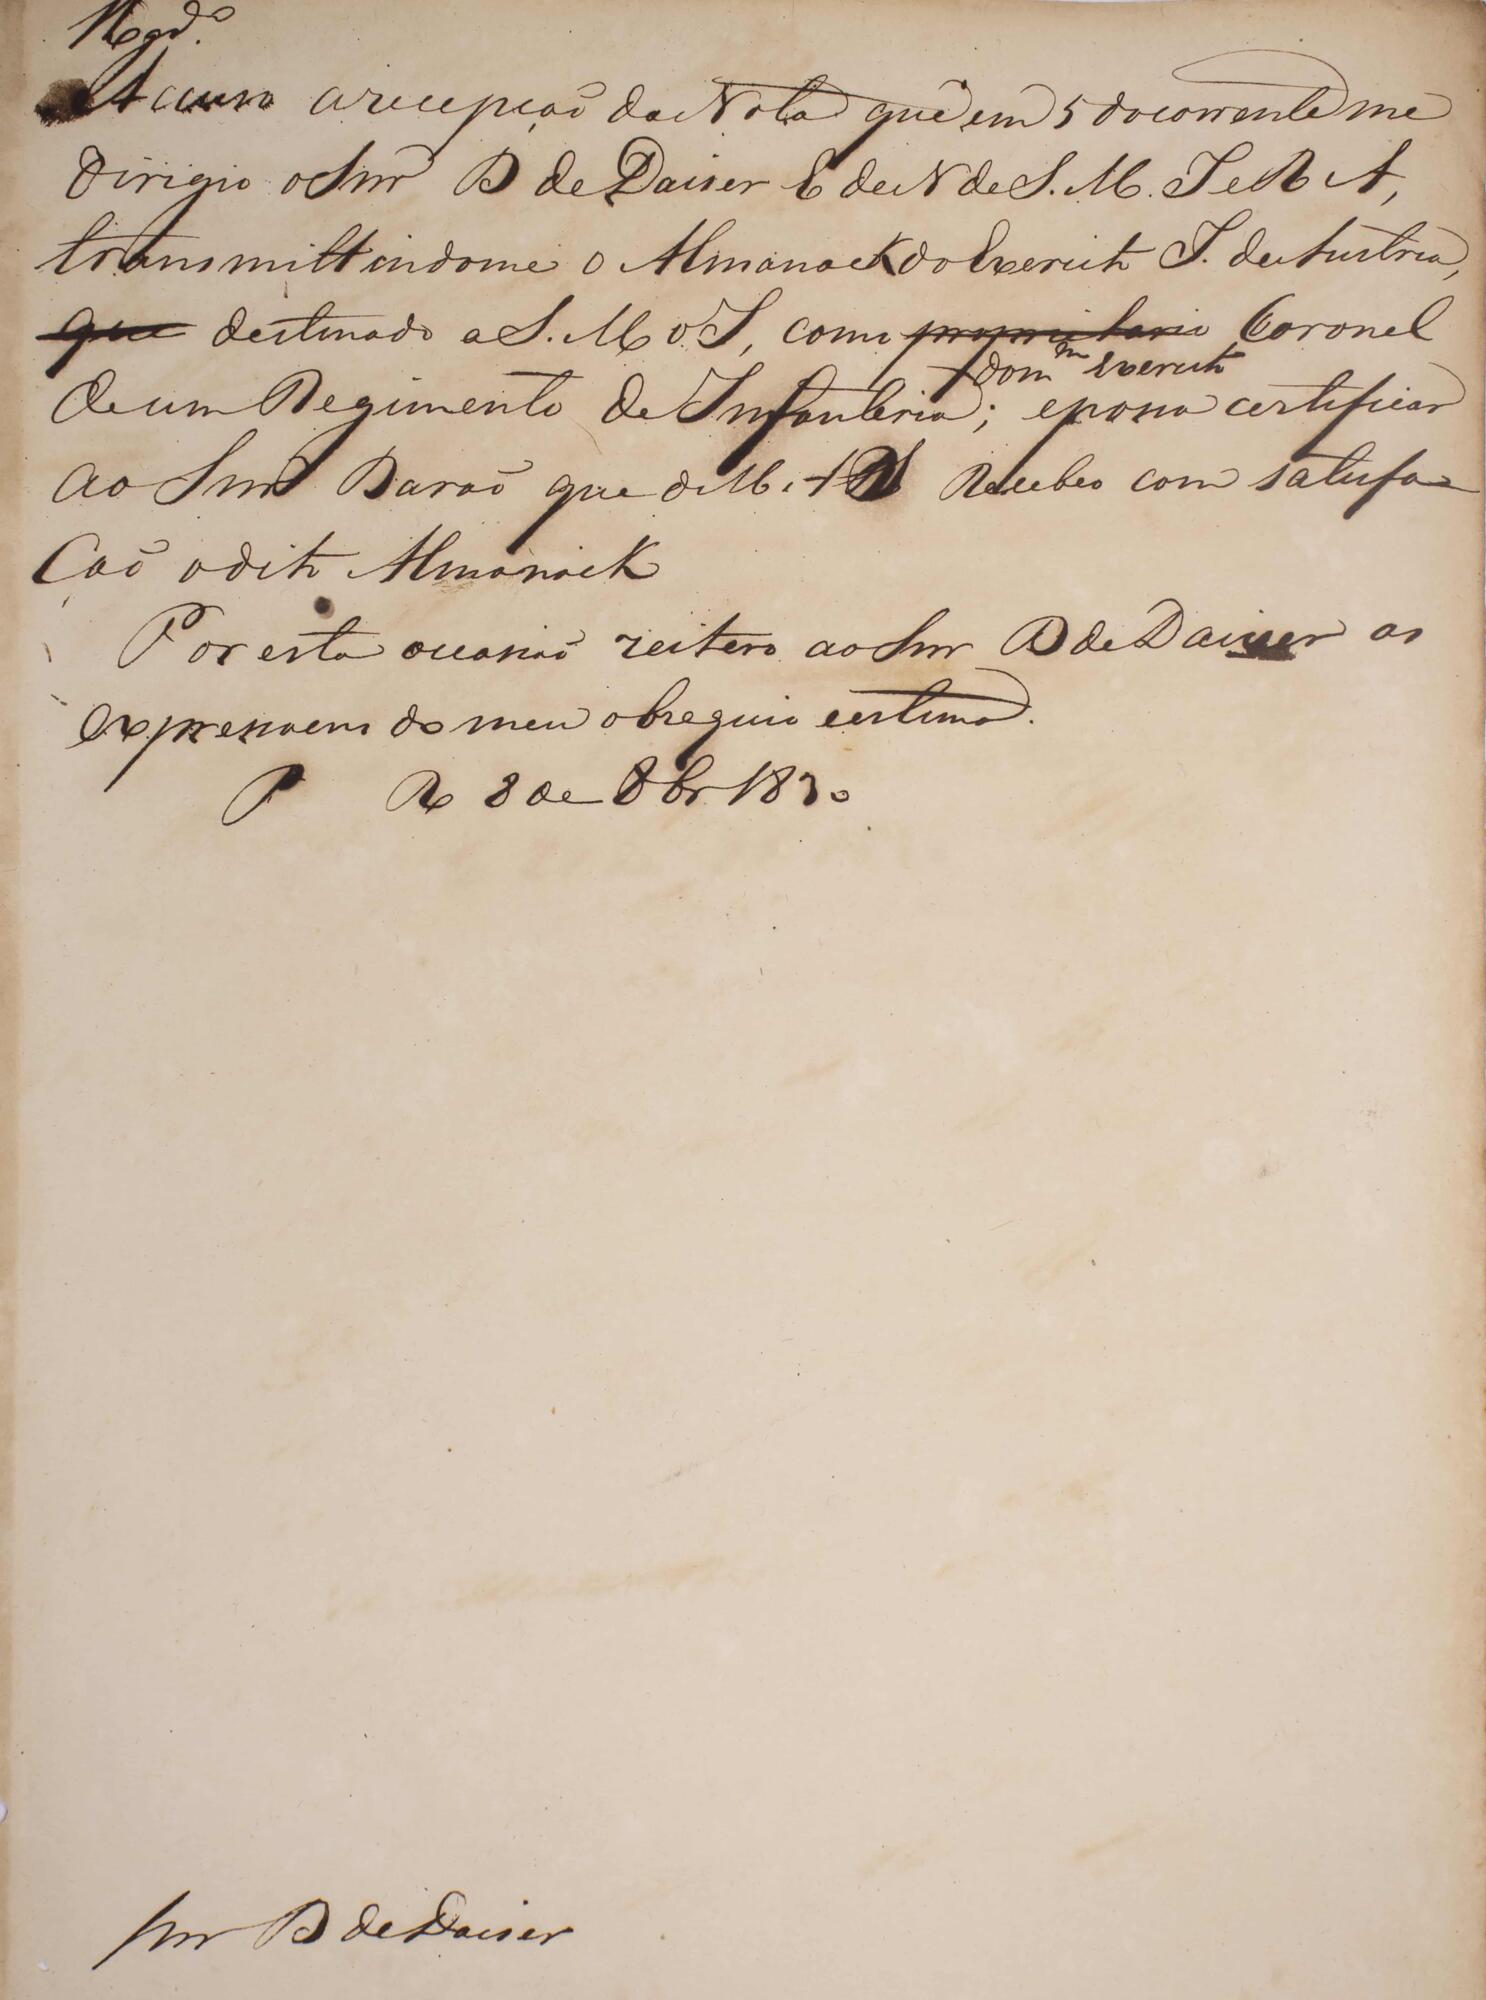 Regd.º
Accuso a recepçaõ da Nota que em 5 do corrente me
dirigio o Snr B de Daiser E de N de S. M. I e R A,
transmittindome o Almanack do Exercito I. da Austria,
que destinado a S. M o I, como proprietario Coronel
do m.mo Exercito
de um Regimento de Infanteria; e posso certificar
ao Snr Baraõ que o M. A Recebeo com satisfa-
çaõ o dito Almanack
Por esta occasiaõ reitero ao Snr B de Daiser as
expressoens do meu obsequio e estima.
P R 8 de 8br 1830
Snr B de Daiser